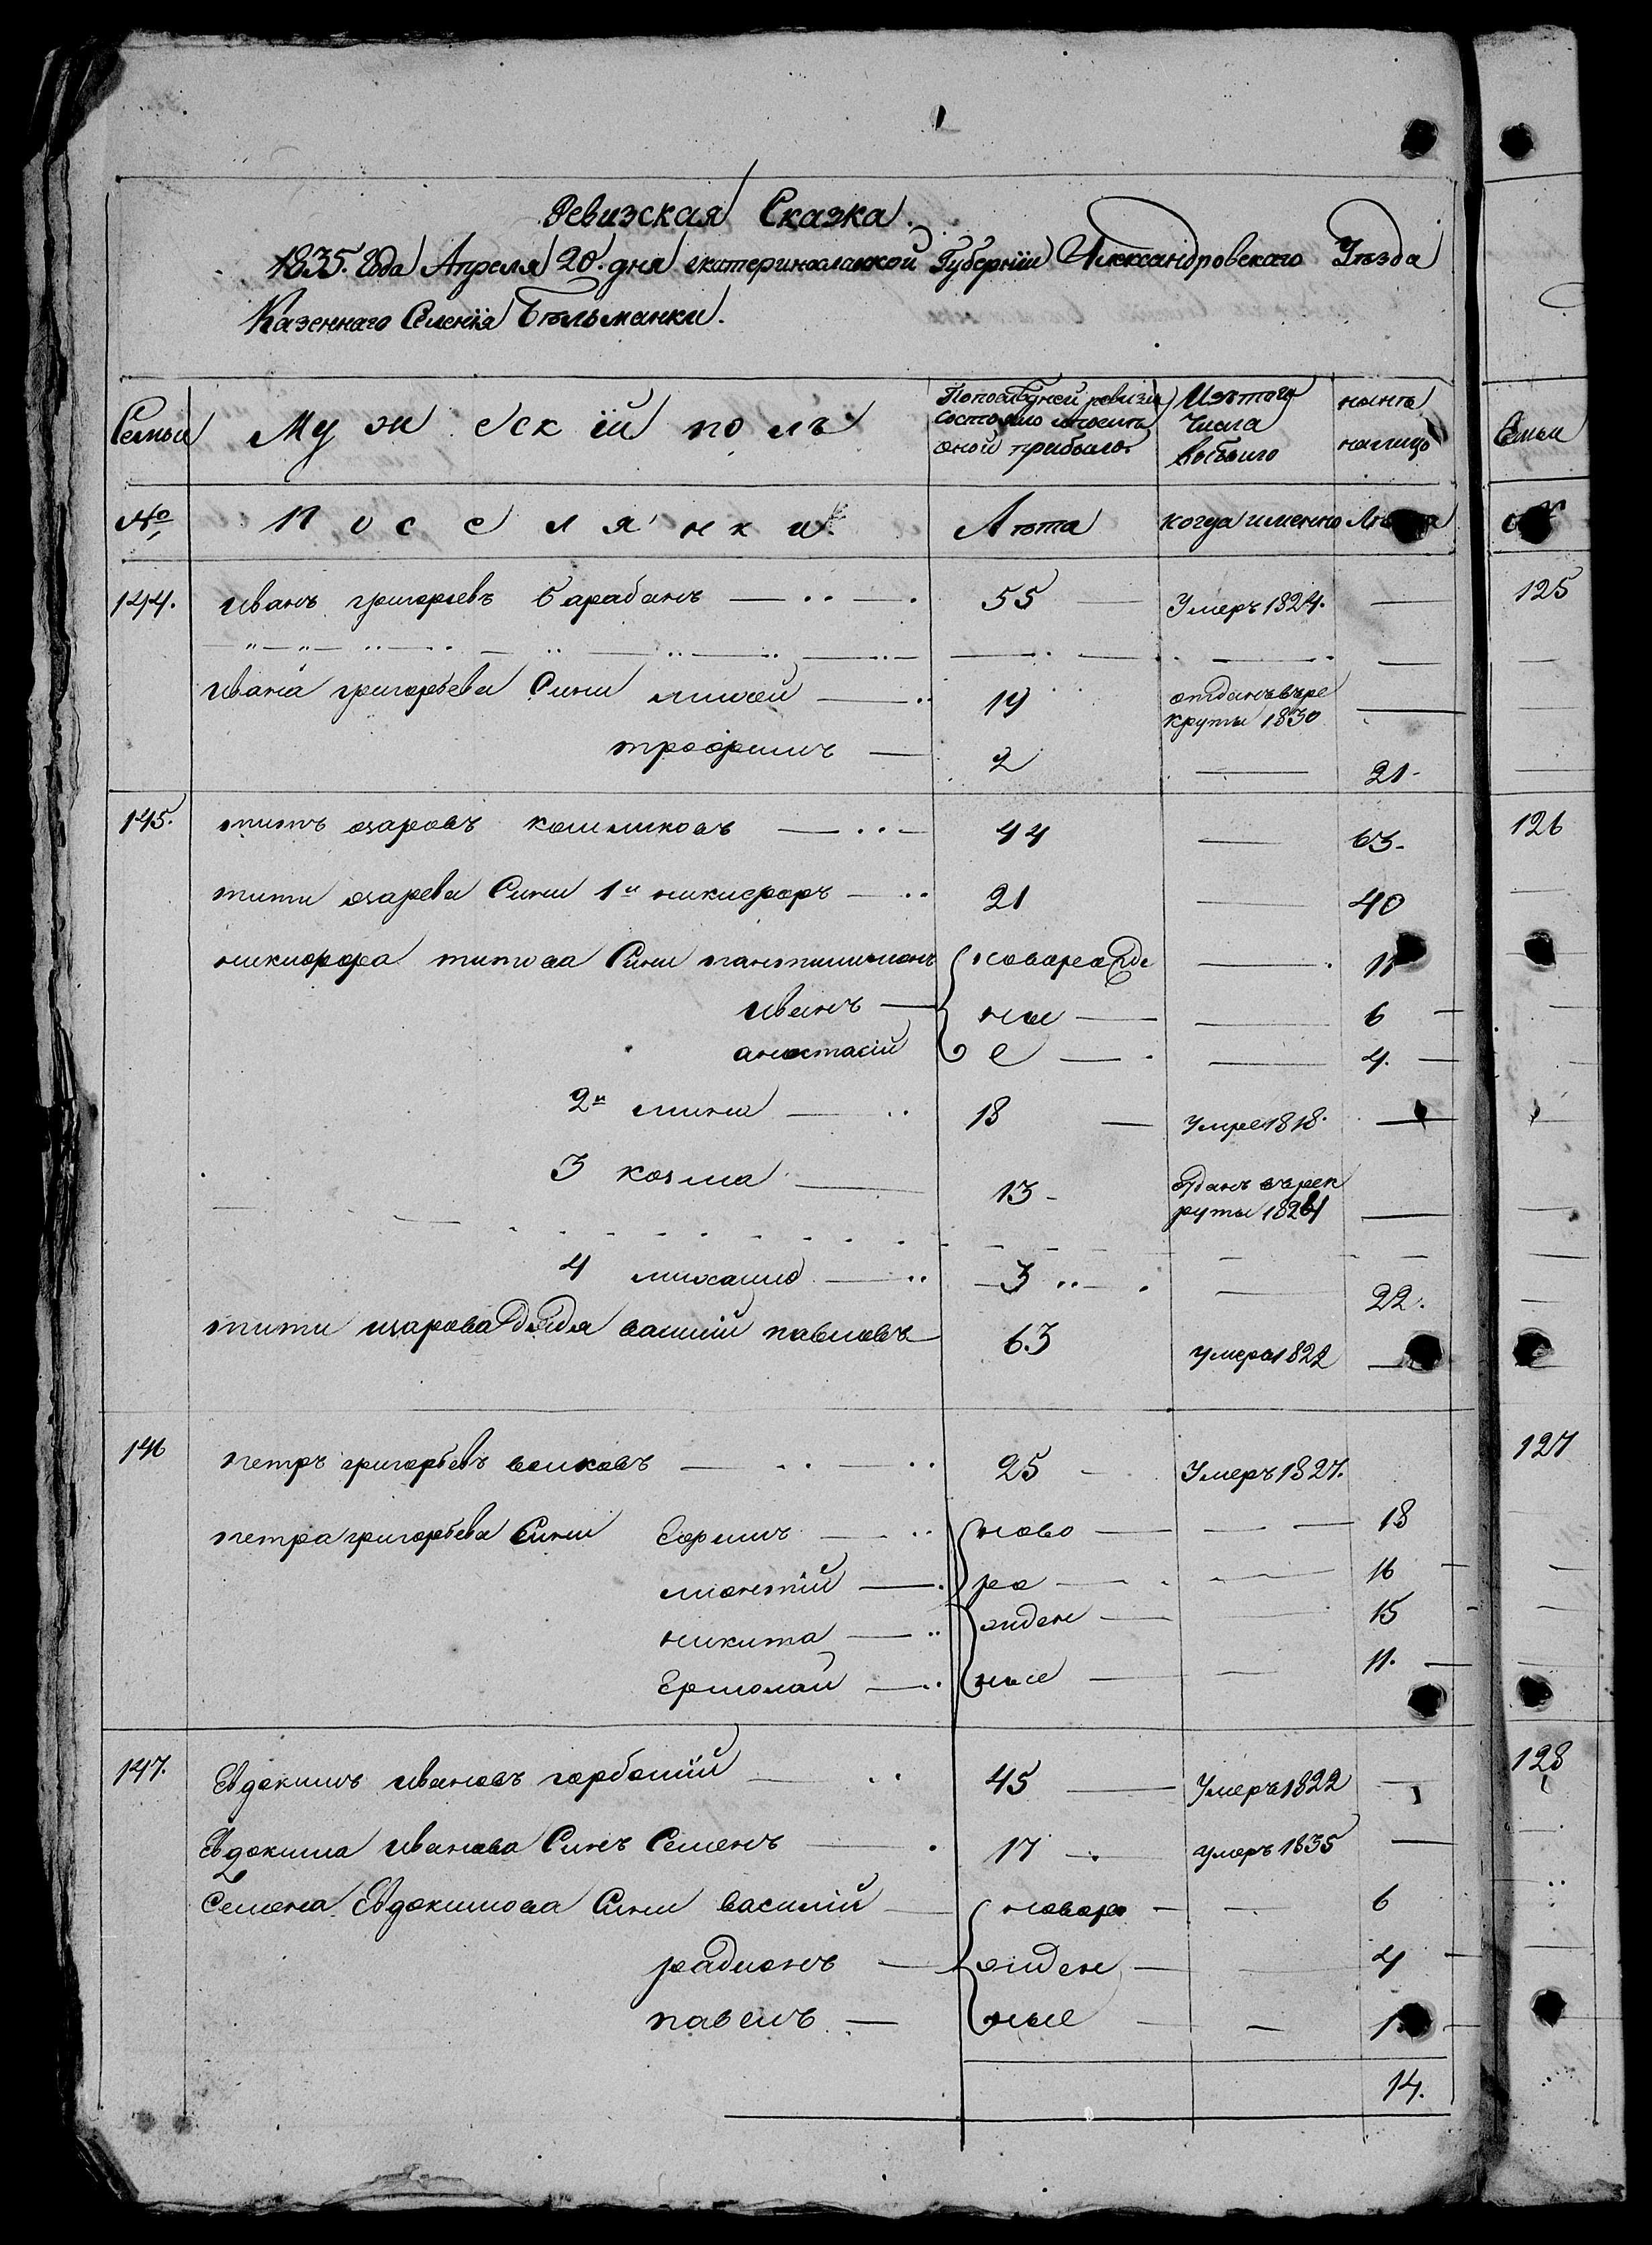 Ревизская Сказка.
1835. Года Апреля 20. дня екатеринославской Губернїи Александровского Уѣзда
Казеннаго Селенїя Бѣльманки.
Семьи Мужескїй полъ По последней ревизіи состояло и после оной прибыло Изъ того числа выбыло нынѣ налицо Семьи
№ Поселянки. Лѣта когда именно Лѣта
144. Иванъ григорьевъ барабанъ 55 Умеръ 1824. 125
Ивана григорьева Сини михей 19 отданъ въре
круты 1830
трофимъ 2 21.
145. титъ кошликовъ 44 63. 126
тити Сини 1й никифоръ 21 40
никифора титова Сини пантилимонъ новорожде 11
иванъ ны 6
анастасій е 4.
2й мина 18 Умре 1818.
3 козма 13 одданъ върек
руты 1821
4 михаилъ 3 22.
тити дядя василий павловъ 63 умеръ 1822
146 петръ григорьевъ волковъ 25 Умеръ 1827. 127
петра григорьева Сини Ефимъ ново 18
леонтїй ро 16
никита жден 15
Ермолай ные 11.
147. Евдокимъ ивановъ горбатїй 45 Умеръ 1822 128
Евдокима иванова Синъ Семенъ 17 умеръ 1835
Семена Евдокимова Сини василїй новоро 6
радионъ жден 4
павелъ ные 1.
14.